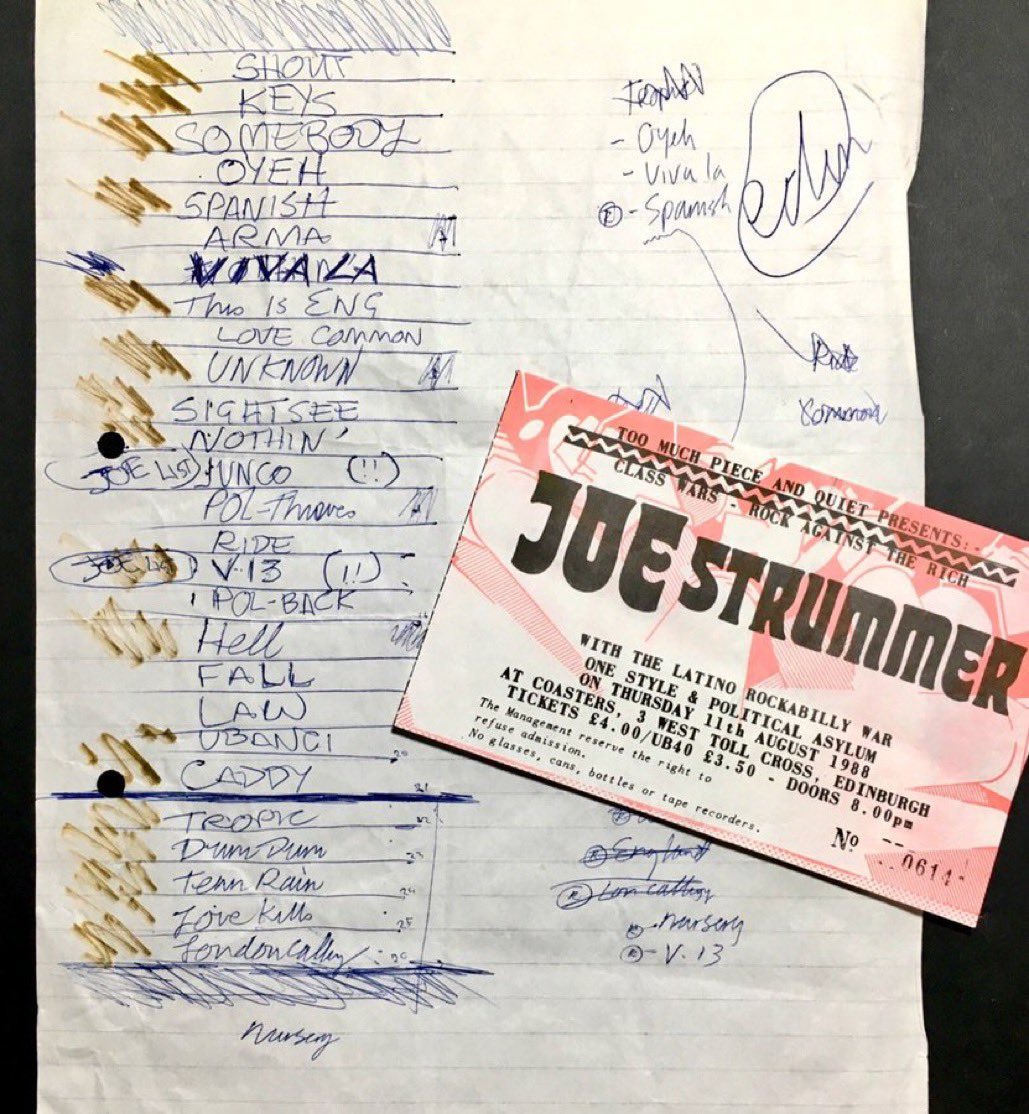 SHOUT
KEYS
SOMEBODY
OYEH
SPANISH
ARMA
VIVA LA
This IS ENG
LOVE COMMON
UNKNOWN
SIGHTSEE
NOTHIN'
JOE LIST JUNCO (!!)
POL-Thieves
RIDE
JOE LIST V.13 (!!)
POL-BACK
Hell
FALL
LAW
UBANGI
20
CADDY
21
TROPIC
22
Dum Dum
23
Tenn Rain
24
Love Kills
25
London Calling
26
Nursery
- Oyeh
- Viva la
R - Spanish
Edin
Ride
Common
R England
R Lon calling
R - Nursery
R - V.13
TOO MUCH PIECE AND QUIET PRESENTS:-
CLASS WARS - ROCK AGAINST THE RICH
JOE STRUMMER
WITH THE LATINO ROCKABILLY WAR
ONE STYLE & POLITICAL ASYLUM
ON THURSDAY 11th AUGUST 1988
AT COASTERS, 3 WEST TOLL CROSS, EDINBURGH
TICKETS £4.00/UB40 £3.50 - DOORS 8.00pm
The Management reserve the right to
refuse admission.
No glasses, cans, bottles or tape recorders.
No 0614